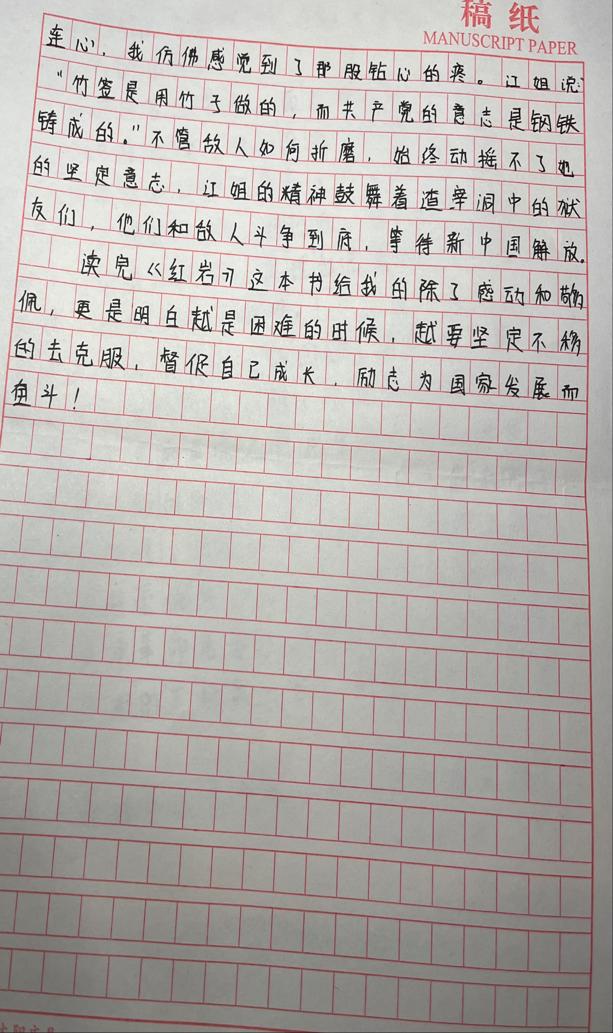 稿纸
MANUSCRIPT PAPER
连心，我仿佛感觉到了那股钻心的疼。江姐说：
“竹签是用竹子做的，而共产党的意志是钢铁
铸成的。”不管敌人如何折磨，始终动摇不了她
的坚定意志，江姐的精神鼓舞着渣宰洞中的狱
友们，他们和敌人斗争到底，等待新中国解放。
读完《红岩》这本书给我的除了感动和敬
佩，更是明白越是困难的时候，越要坚定不移
的去克服，督促自己成长，励志为国家发展而
奋斗！